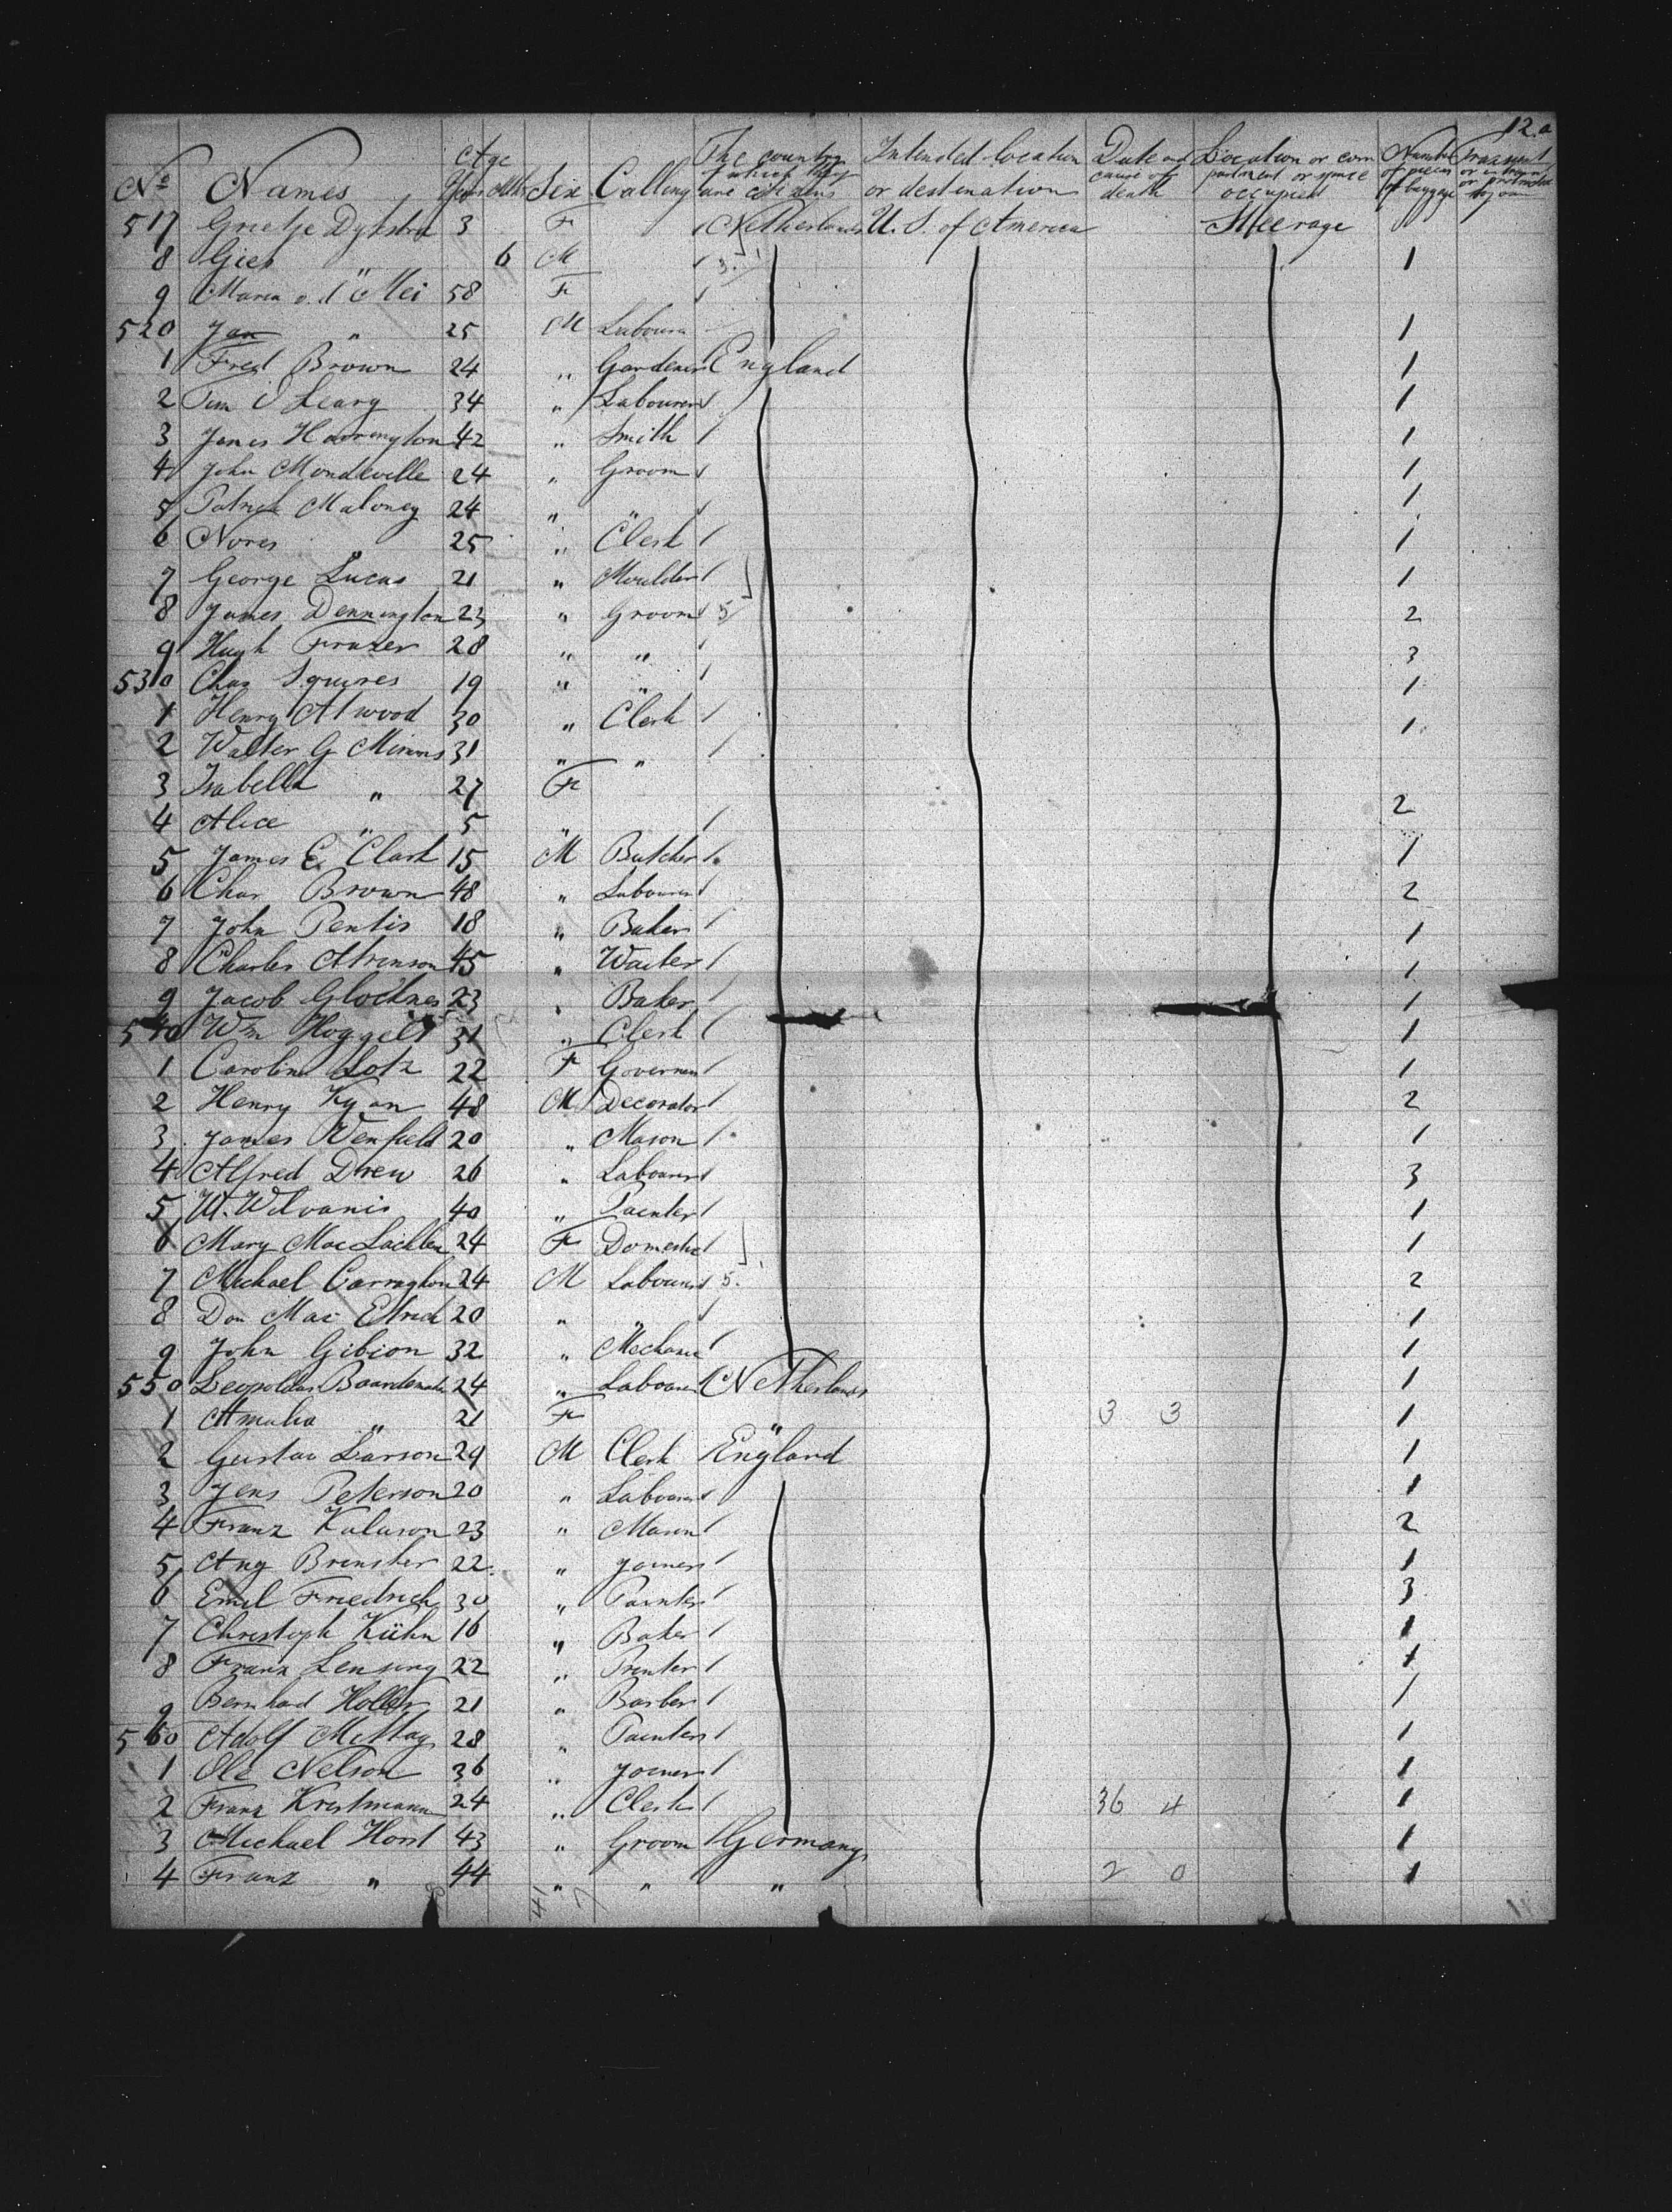 12.a
No Names Age Years Mths Sex Calling The country of which they are citizens Intended location or destination Date and cause of death Location or compartment or space occupied Number of pieces of baggage Transient or in transit or protracted sojourn
517 Grietje Dykstra 3 F Netherlands U. S. of America Steerage
8 Gies " 6 M 3. 1
9 Maria v. d Mei 58 F
520 Jan " 25 M Laboura 1
1 Fred Brown 24 " Gardener England 1
2 Tim O Leary 34 " Labourer 1
3 James Harrington 42 " Smith 1
4 John Mondeville 24 " Groom 1
5 Patrick Maloney 24 " " 1
6 Nores " 25 " Clerk 1
7 George Lucas 21 " Moulder 1
8 James Dennington 23 " Groom 5 2
9 Hugh Frazer 28 " " 3
530 Chas Squires 19 " " 1
1 Henry Atwood 30 " Clerk 1
2 Walter G Mimms 31 " "
3 Isabella " 27 F
4 Alice " 5 " 2
5 James E. Clark 15 M Butcher 1
6 Char Brown 48 " Labourer 2
7 John Pentis 18 " Baker 1
8 Charles Atkinson 45 " Waiter 1
9 Jacob Glockner 23 " Baker 1
540 Wm Hoggett 31 " Clerk 1
1 Caroline Lotz 22 F Governess 1
2 Henry Kyan 48 M Decorator 2
3 James Wenfield 20 " Mason 1
4 Alfred Drew 26 " Labourer 3
5 W. Wilvanis 40 " Painter 1
6 Mary MacLachlen 24 F Domestic 1
7 Michael Carraghon 24 M Labourer 5. 2
8 Don Mac Etrick 20 " " 1
9 John Gibion 32 " Mechanic 1
550 Leopoldus 24 " Labourer Netherlands 1
1 Amalia " 21 F " 3 3 1
2 Gustav Larson 29 M Clerk England 1
3 Jens Peterson 20 " Labourer 1
4 Franz Kalason 23 " Mason 2
5 Aug Brensker 22 " Joiner 1
6 Emil Friedrich 30 " Painter 3
7 Christoph Kühn 16 " Baker 1
8 Franz Lensing 22 " Printer 1
9 Bernhad Holler 21 " Barber 1
560 Adolf 28 " Painter 1
1 Ole Nelson 36 " Joiner 1
2 Franz Kristmann 24 " Clerk 36 4 1
3 Michael Horst 43 " Groom Germany 1
4 Franz " 44 " " " 2 0 1
41 7 11